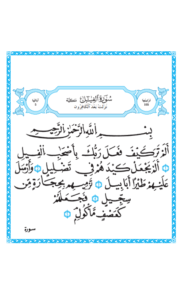 سُورَةُ الْفِيلِ مَكِّيَّة
بِسْمِ اللَّهِ الرَّحْمَٰنِ الرَّحِيمِ
أَلَمْ تَرَ كَيْفَ فَعَلَ رَبُّكَ بِأَصْحَٰبِ الْفِيلِ
أَلَمْ يَجْعَلْ كَيْدَهُمْ فِي تَضْلِيلٍ وَأَرْسَلَ
عَلَيْهِمْ طَيْرًا أَبَابِيلَ تَرْمِيهِم بِحِجَارَةٍ مِّن
سِجِّيلٍ فَجَعَلَهُمْ
كَعَصْفٍ مَّأْكُولٍ
سورة